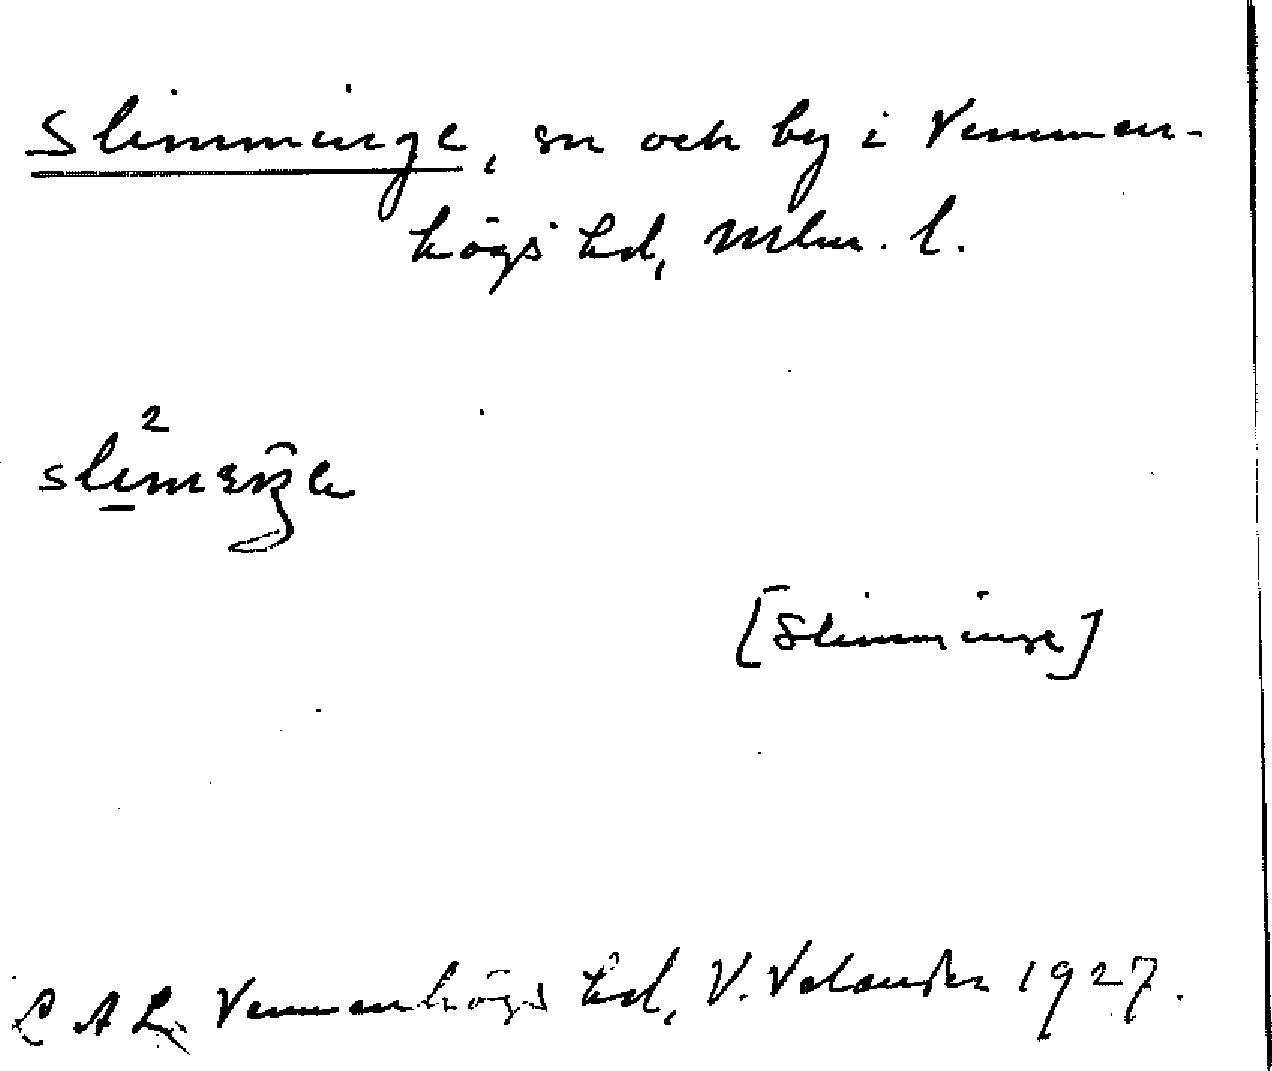 Slimminge, sn och by i Vemmen-
högs hd, Mlm. l.
[Slimminge]
LAL, Vemmenhögs hd, V. Velander 1927.